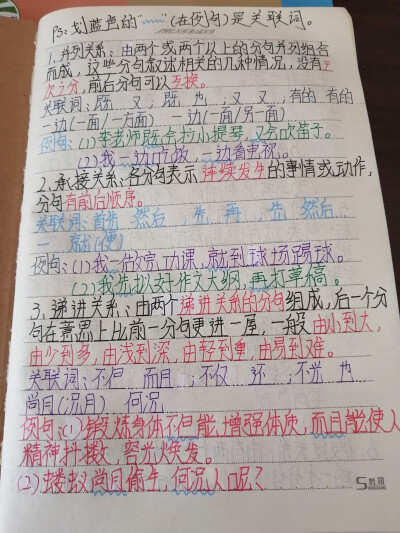 PS:划蓝色的“﹏﹏”(在例句)是关联词。
1.并列关系:由两个或两个以上的分句并列组合
而成,这些分句叙述相关的几种情况,没有主
次之分,前后分句可以互换。
关联词:既 又;既 也;又 又;有的 有的
一边(一面/一方面) 一边(一面/另一面)
例句:(1)李老师既会拉小提琴,又会吹笛子。
(2)我一边吃饭,一边看电视。
2、承接关系:各分句表示连续发生的事情或动作,
分句有前后顺序。
关联词:首先 然后 先 再 先 然后
一 就(便)
例句:(1)我一做完功课,就到球场踢球。
(2)我先拟好作文大纲,再打草稿。
3、递进关系:由两个递进关系的分句组成,后一个分
句在意思上比前一分句更进一层,一般由小到大,
由少到多,由浅到深,由轻到重,由易到难。
关联词:不但 而且;不仅 还;不光 也
尚且(况且) 何况
例句:(1)锻炼身体不但能增强体质,而且能使人
精神抖擞、容光焕发。
(2)蝼蚁尚且偷生,何况人呢?